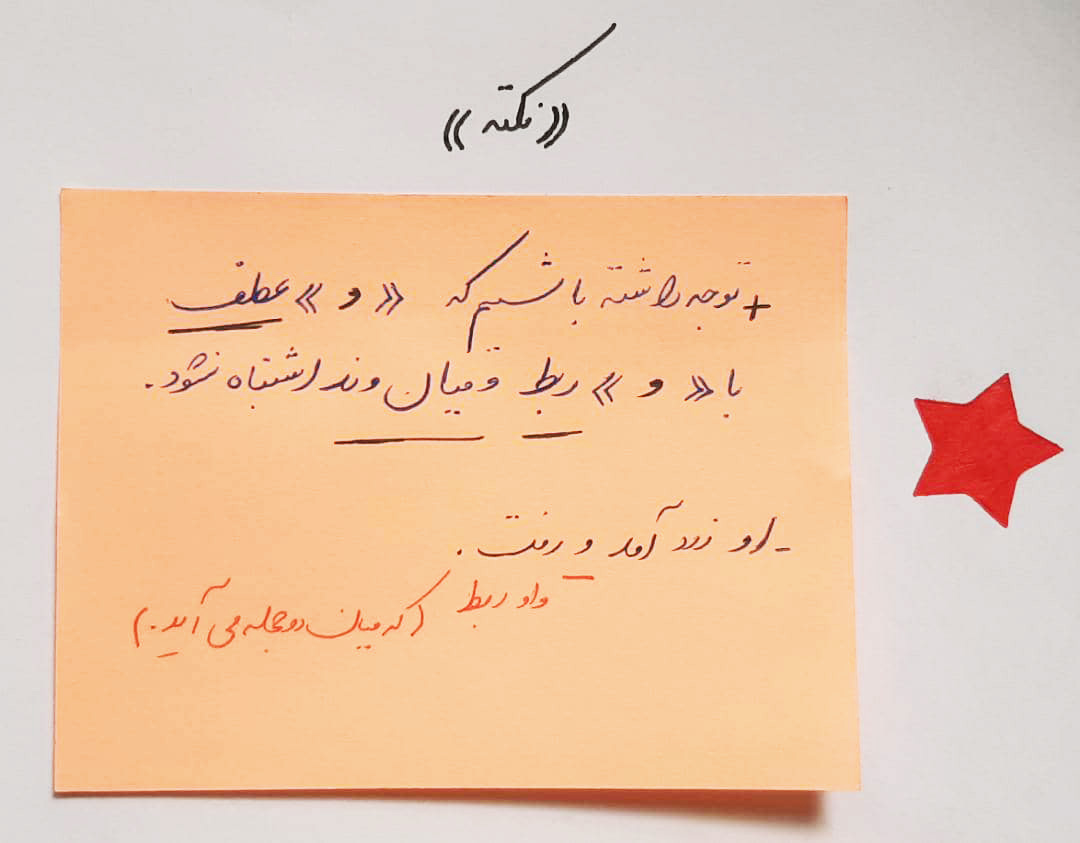 «نکته»
+ توجه داشته باشیم که «و» عطف
با «و» ربط و میان وند اشتباه نشود.
- او زود آمد و رفت.
واو ربط (که میان دو جمله می آید.)